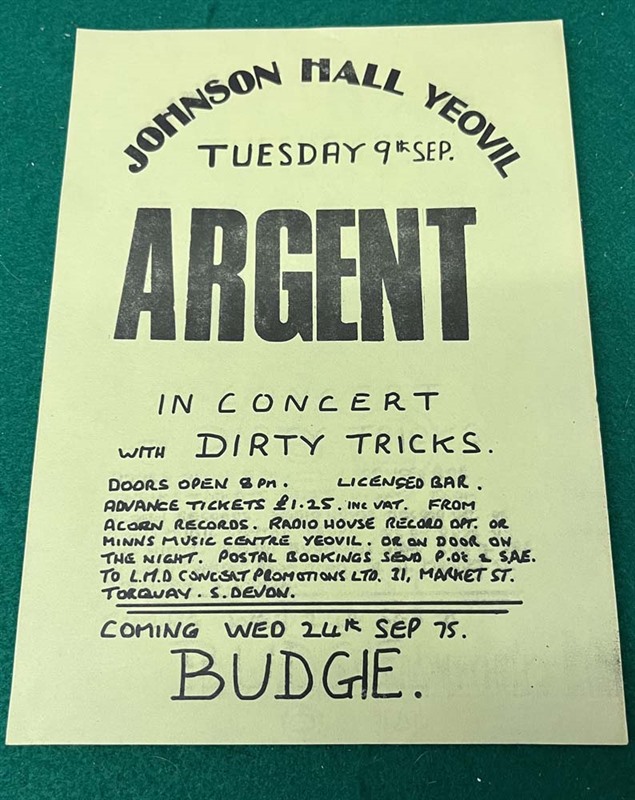 JOHNSON HALL YEOVIL
TUESDAY 9th SEP.
ARGENT
IN CONCERT
WITH DIRTY TRICKS.
DOORS OPEN 8PM. LICENSED BAR.
ADVANCE TICKETS £1.25. INC VAT. FROM
ACORN RECORDS. RADIO HOUSE RECORD DPT. OR
MINNS MUSIC CENTRE YEOVIL. OR ON DOOR ON
THE NIGHT. POSTAL BOOKINGS SEND P.O. & SAE.
TO L.M.D CONCERT PROMOTIONS LTD. 31, MARKET ST.
TORQUAY. S. DEVON.
COMING WED 24th SEP 75.
BUDGIE.